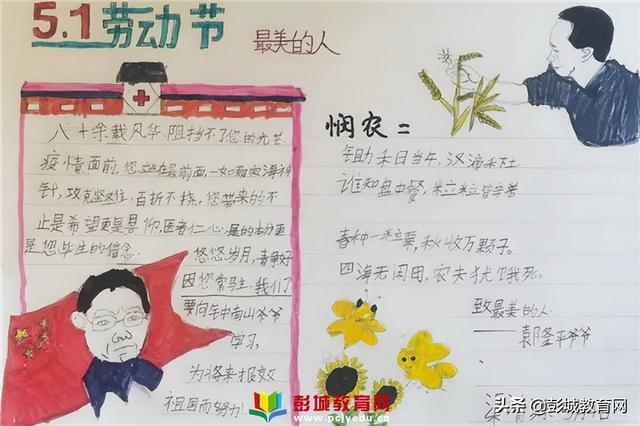 5.1劳动节
最美的人
八十余载风华.阻挡不了您的光芒
疫情面前,您站在最前面,一如既定海神
针,攻克坚难,百折不挠,您带来的不
止是希望更是景仰,医者仁心.是的本分更
是您毕生的信念
悠悠岁月,春争好
因您常驻.我们
要向钟南山爷爷
学习,
为将来报效
祖国而努力!
悯农二
锄禾日当午,汗滴禾下土
谁知盘中餐,粒粒皆辛苦
春种一粒粟,秋收万颗子。
四海无闲田,农夫犹饿死。
致最美的人
——袁隆平爷爷
彭城教育网
www.pcjyedu.cn
头条@彭城教育网